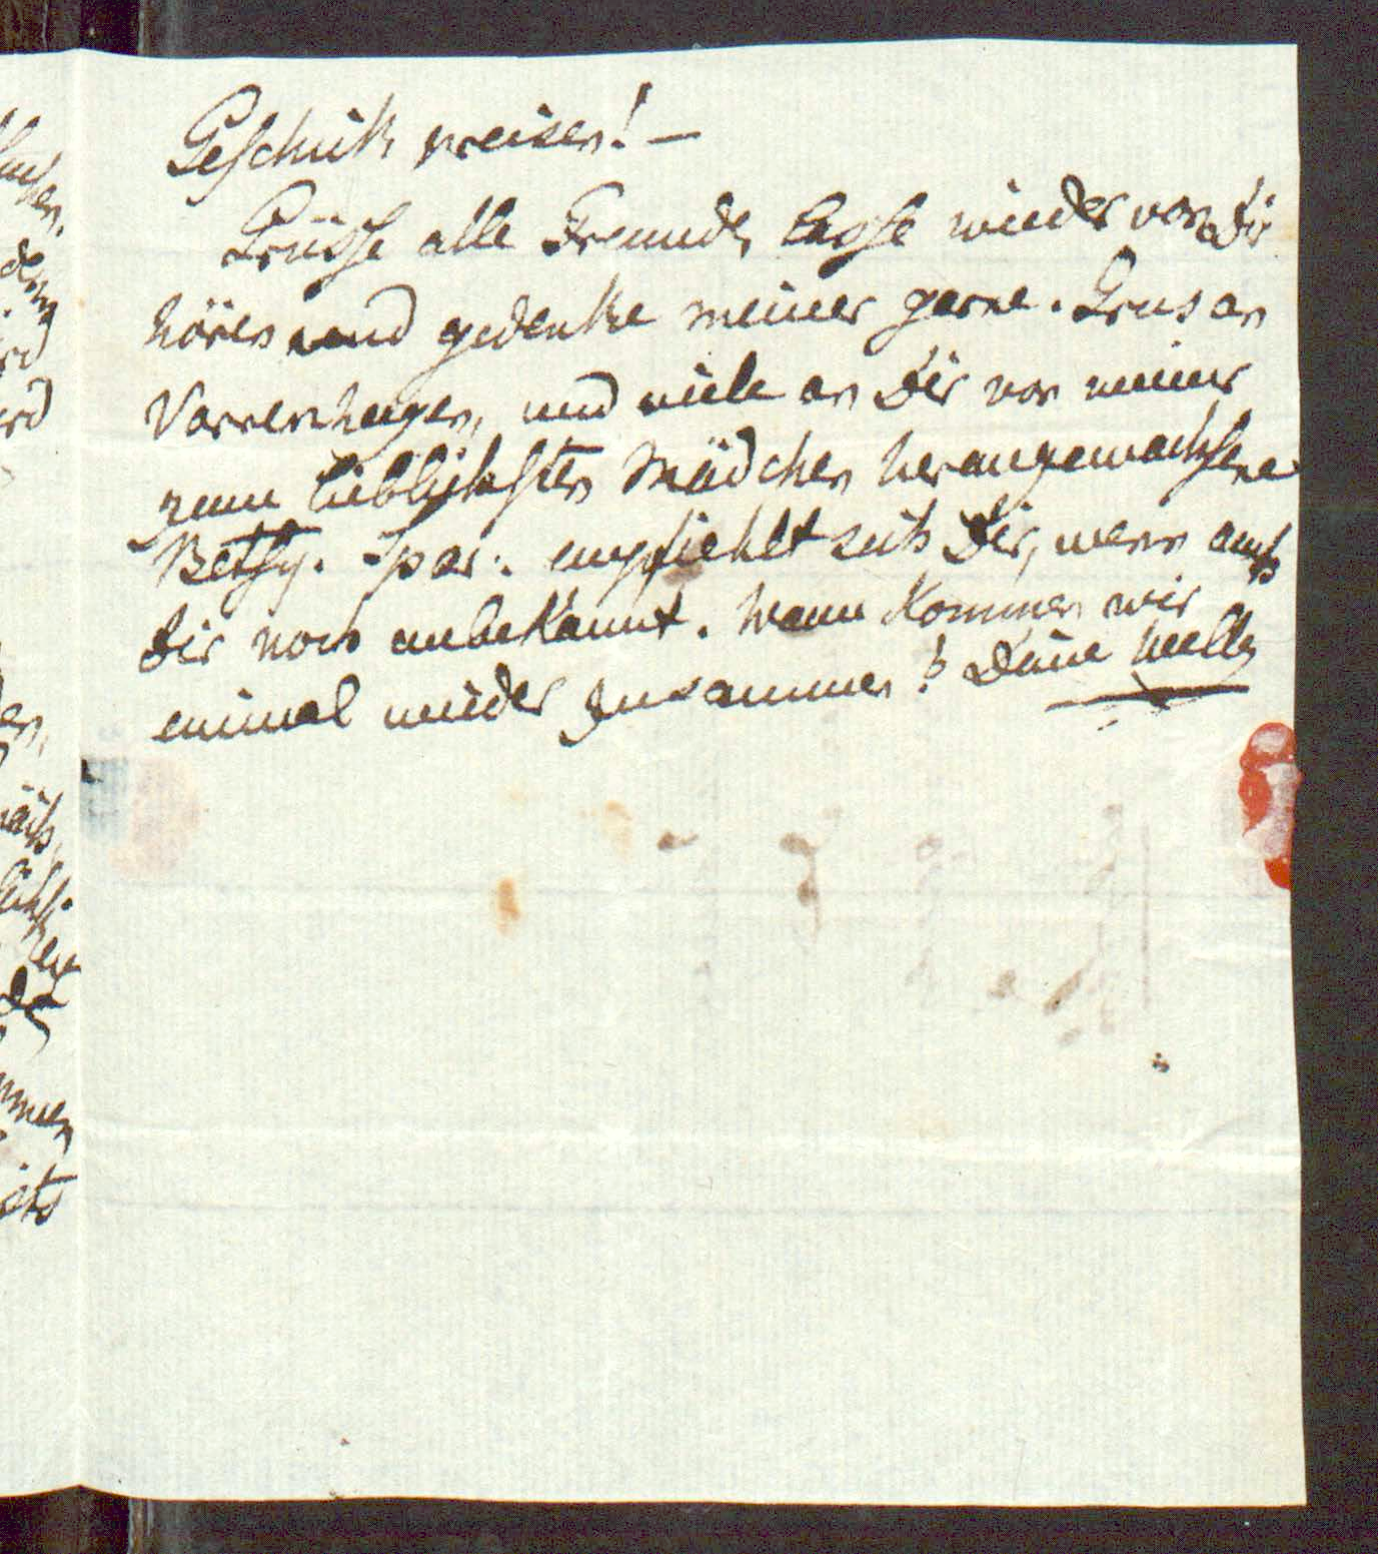 Geschik preisen! —
Grüsse alle Freunde, lasse wieder von Dir
hören und gedenke meiner gerne. Grus an
Varnenhagen, und viele an Dir von meiner
zum lieblichsten Mädchen herangewachsene
Betsy. empfiehlt sich Dir, wenn auch
dir noch unbekannt. Wann kommen wir
einmal wieder zusammen? Deine